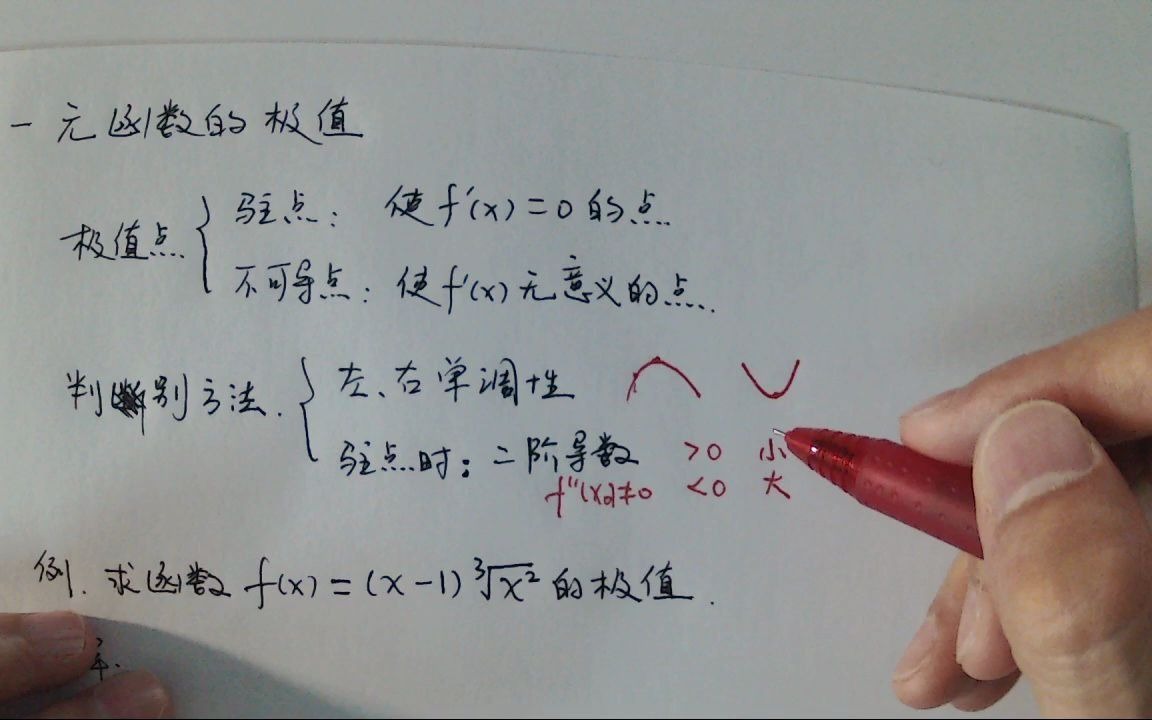 一元函数的极值
极值点 { 驻点: 使f′(x)=0的点.
不可导点: 使f′(x)无意义的点.
判别方法. { 左、右单调性
驻点时: 二阶导数 >0 小
f″(x₀)≠0 <0 大
例. 求函数f(x)=(x-1)∛x²的极值.